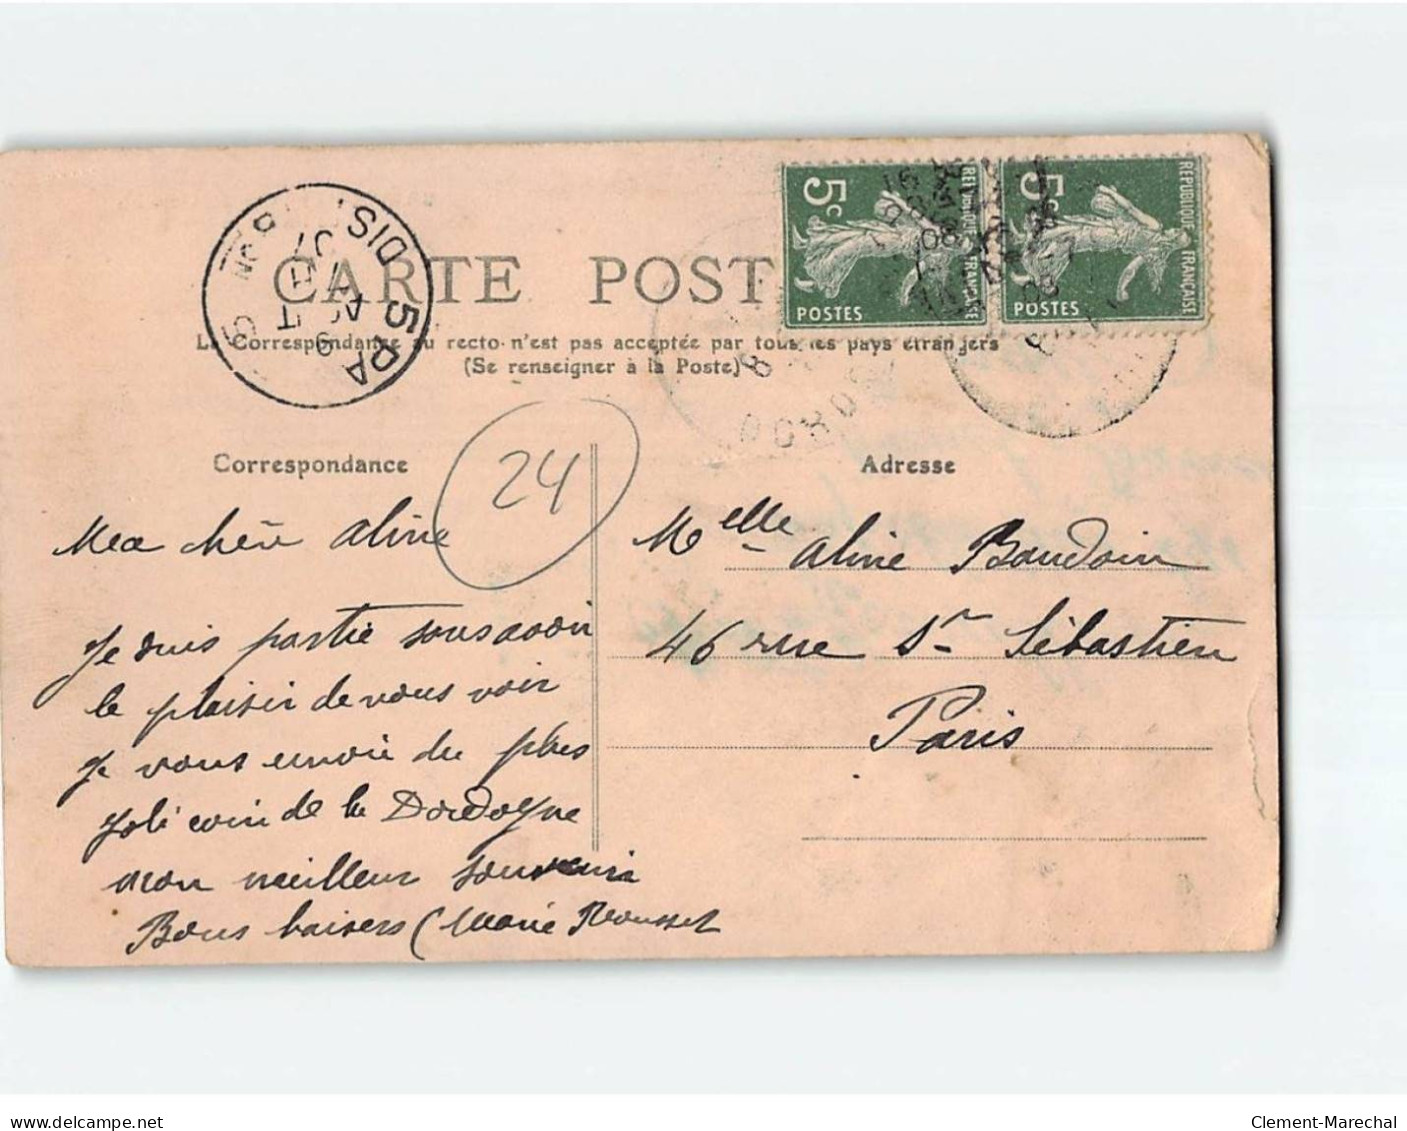 CARTE POST
La Correspondance au recto n'est pas acceptée par tous les pays étrangers
(Se renseigner à la Poste)
5c
REPUBLIQUE FRANÇAISE
POSTES
5c
REPUBLIQUE FRANÇAISE
POSTES
PARIS 5 DIST
07
24
Correspondance
Ma chère Aline
Je suis partie sans avoir
le plaisir de vous voir
Je vous envoie du plus
Joli coin de la Dordogne
mon meilleur souvenir
Bons baisers Marie Rousset
Adresse
Melle Aline Baudoin
46 rue St Sébastien
Paris
www.delcampe.net
Clement-Marechal